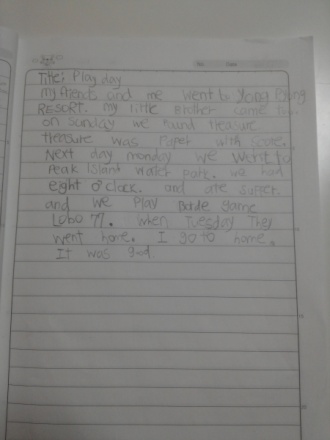 Title: Play day
my friends and me went to Yong Pyong
RESORT. my little Brother came too.
on sunday we found treasure
treasure was paper with score.
Next day monday we went to
Peak Island water park. we had
eight o'clock. and ate supper.
and we play Borde game
Lobo 77. when Tuesday They
went home. I go to home.
It was good.